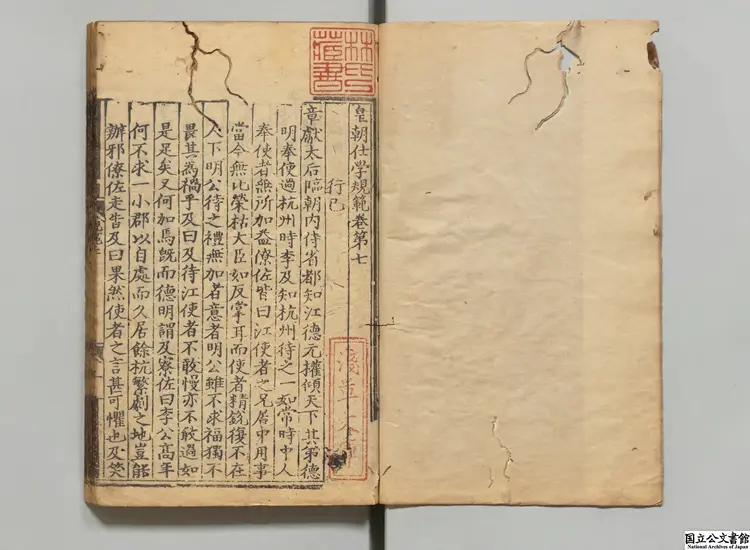 皇朝仕學規範卷第七
行己
章獻太后臨朝内侍省都知江德元權傾天下其弟德
明奉使過杭州時李及知杭州待之一如常時中人
奉使者無所加益僚佐皆曰江使者之兄居中用事
當今無比榮枯大臣如反掌耳而使者精銳復不在
人下明公待之禮無加者意者明公雖不求福獨不
畏其為禍乎及曰及待江使者不敢慢亦不敢過如
是足矣又何加焉旣而德明謂及寮佐曰李公高年
何不求一小郡以自處而久居餘杭繁劇之地豈能
辦邪僚佐走告及曰果然使者之言甚可懼也及笑
林氏
藏書
淺草文庫
国立公文書館
National Archives of Japan